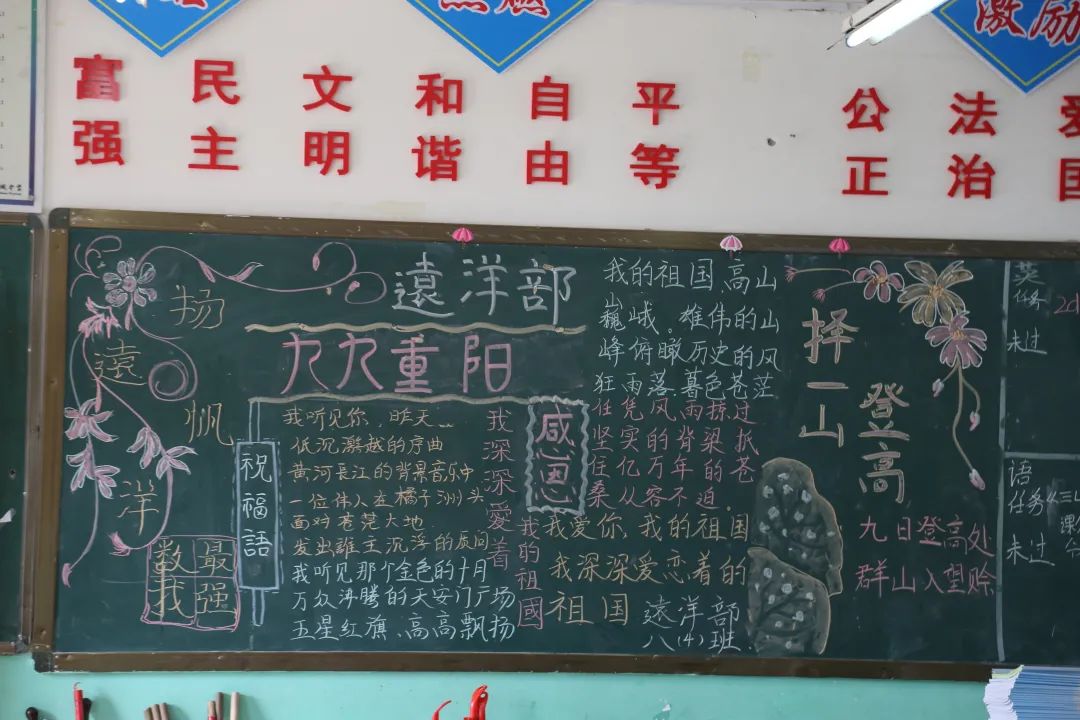 激励
富强
民主
文明
和谐
自由
平等
公正
法治
爱国
扬
遠
帆
洋
数最
我强
遠洋部
九九重阳
祝福語
我听见你，昨天
低沉激越的序曲
黄河長江的背景音乐中
一位伟人在橘子洲头
面对苍茫大地
发出誰主沉浮的质问
我听见那个金色的十月
万众沸腾的天安门广场
五星红旗、高高飘扬
我深深爱着
我的祖國
感恩
我的祖国高山
巍峨．雄伟的山
峰俯瞰历史的风
狂雨落．暮色苍茫
任凭风雨掠过
坚实的背梁抵
住亿万年的苍
桑从容不迫
我爱你，我的祖国
我深深爱恋着的
祖国
遠洋部
八（4）班
择一山
登高
九日登高处
群山入望赊
英
任务
未过
语
任务
未过